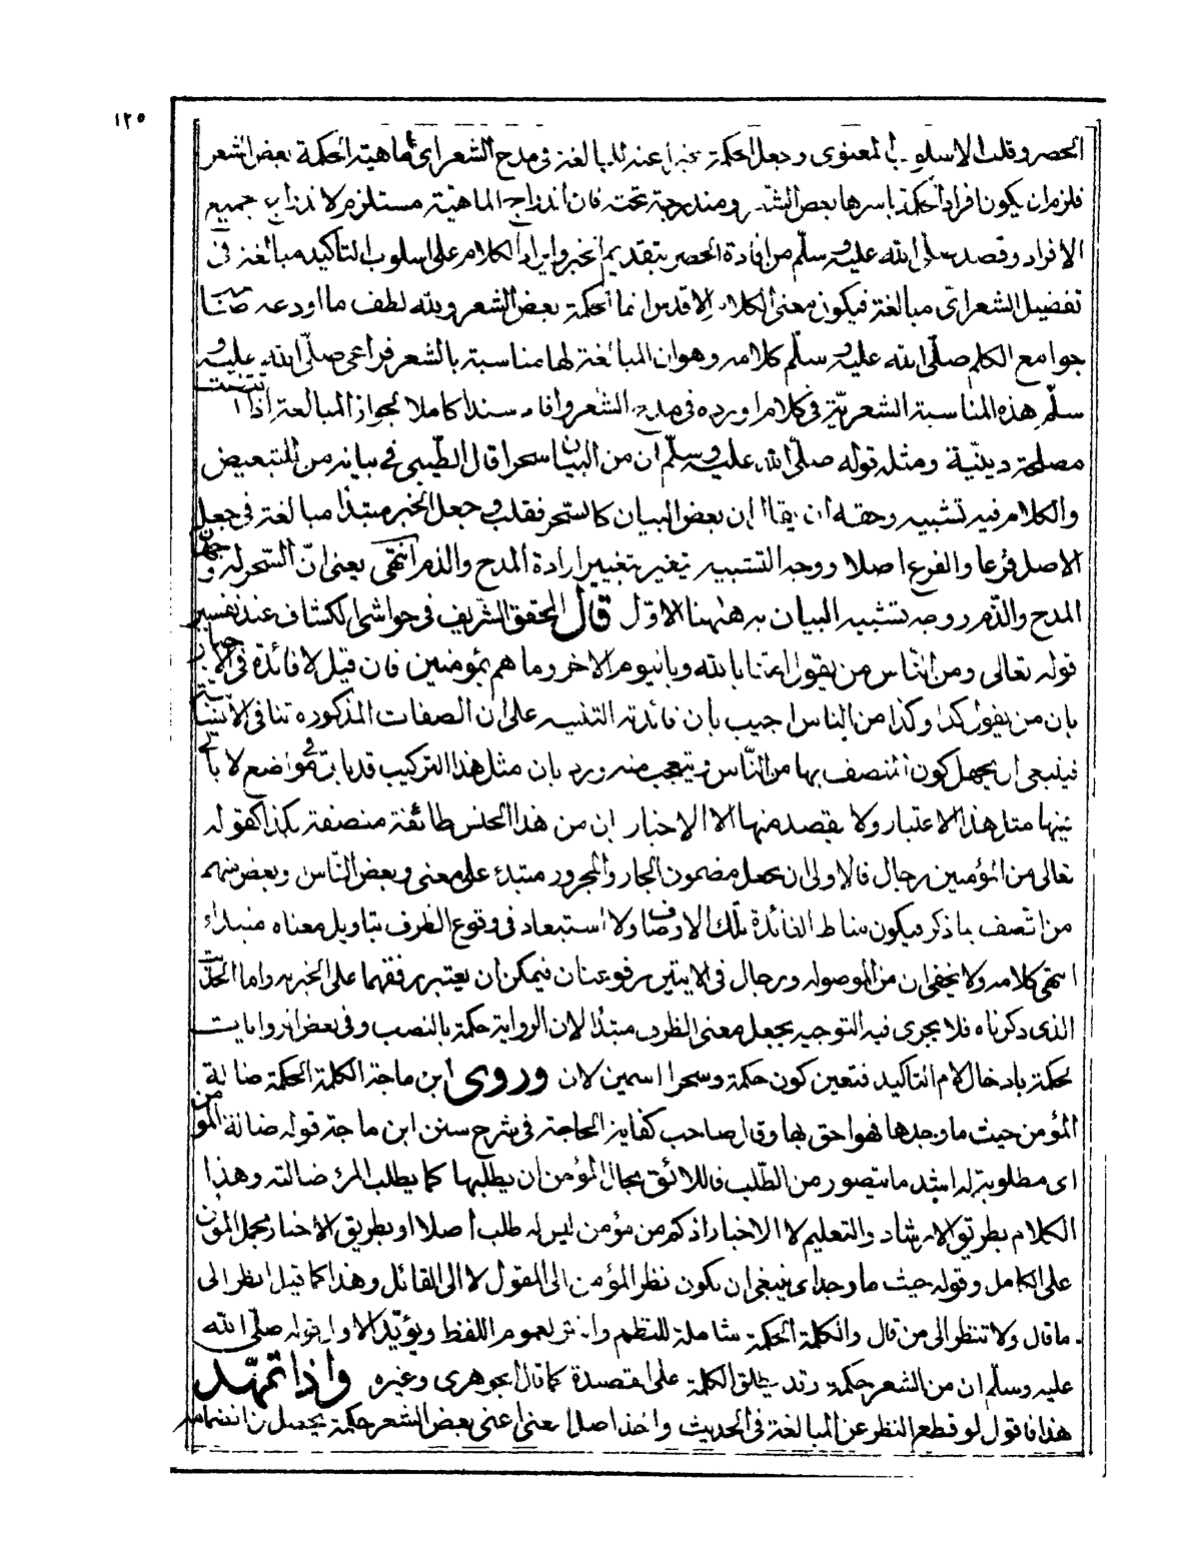 ١٢٥
الحصر وقلب الاسلوب المعنوى وجعل الحكمة مخبرا عنه للمبالغة فى مدح الشعر اى ماهية الحكمة بعض الشعر
فلزم ان يكون افراد الحكمة باسرها بعض الشعر ومندرجة تحته فان اندراج الماهية مستلزم لاندراج جميع
الافراد وقصد صلى الله عليه وسلم من افادة الحصر بتقديم الخبر وايراد الكلام على اسلوب التأكيد مبالغة فى
تفضيل الشعر اى مبالغة فيكون معنى الكلام الاقدس انما الحكمة بعض الشعر ولله لطف ما اودعه صاحب
جوامع الكلم صلّى الله عليه وسلّم كلامه وهو ان المبالغة لها مناسبة بالشعر فراعى صلّى الله عليه و
سلّم هذه المناسبة الشعريّة فى كلام اورده فى مدح الشعر وافاد سندا كاملا لجواز المبالغة اذا اقتضت
مصلحة دينيّة ومثله قوله صلّى الله عليه وسلّم ان من البيان سحرا قال الطّيبى فى بيانه من للتبعيض
والكلام فيه تشبيه وحقه ان يقال ان بعض البيان كالسّحر فقلب وجعل الخبر مبتدأ مبالغة فى جعل
الاصل فرعا والفرع اصلا ووجه التشبيه يتغير بتغيير ارادة المدح والذم انتهى يعنى انّ السّحر له وجهان
المدح والذّم ووجه تشبيه البيان به هٰهنا الاوّل قال المحقق الشّريف فى حواشى الكشاف عند تفسير
قوله تعالى ومن النّاس من يقول امنّا بالله وباليوم الاخر وما هم بمؤمنين فان قيل لا فائدة فى الاخبار
بان من يقول كذا وكذا من الناس اجيب بان فائدته التنبيه على ان الصفات المذكوره تنافى الانسانية
فينبغى ان يجهل كون المتصف بها من النّاس ويتعجب منه ورد بان مثل هذا التركيب قد يأتى فى مواضع لا يأتى
فيها مثل هذا الاعتبار ولا يقصد منها الا الاخبار ان من هذا الجنس طائفة متصفة بكذا كقوله
تعالى من المؤمنين رجال فالاولى ان يجعل مضمون الجار والمجرور مبتدء على معنى وبعض النّاس وبعض منهم
من اتّصف بما ذكر فيكون مناط الفائدة تلك الاوصاف ولا استبعاد فى وقوع الظرف بتاويل معناه مبتداء
انتهى كلامه ولا يخفى ان من الموصوله ورجال فى الايتين مرفوعتان فيمكن ان يعتبر رفعهما على الخبريه واما الحديث
الذى ذكرناه فلا يجرى فيه التوجيه بجعل معنى الظرف مبتدأ لان الرواية حكمة بالنصب وفى بعض الروايات
لحكمة بادخال لام التاكيد فتعين كون حكمة وسحرا اسمين لان وروى ابن ماجة الكلمة الحكمة ضالة
المؤمن حيث ما وجدها فهو احق بها وقال صاحب كفاية الحاجة فى شرح سنن ابن ماجة قوله ضالة المؤمن
اى مطلوبة له اشد ما يتصور من الطّلب فاللائق بحال المؤمن ان يطلبها كما يطلب المرئ ضالته وهذا
الكلام بطريق الارشاد والتعليم لا الاخبار اذ كم من مؤمن ليس له طلب اصلا او بطريق الاخبار بحمل المؤمن
على الكامل وقوله حيث ما وجد اى ينبغى ان يكون نظر المؤمن الى المقول لا الى القائل وهذا كما قيل انظر الى
ما قال ولا تنظر الى من قال والكلمة الحكمة شاملة للنظم والنثر لعموم اللفظ ويؤيّد الاول قوله صلّى الله
عليه وسلّم ان من الشعر حكمة وقد يطلق الكلمة على القصيدة كما قال الجوهرى وغيره واذا تمهّد
هذا فاقول لو قطع النظر عن المبالغة فى الحديث واخذ اصل المعنى اعنى بعض الشعر حكمة يحصل من انضمامه